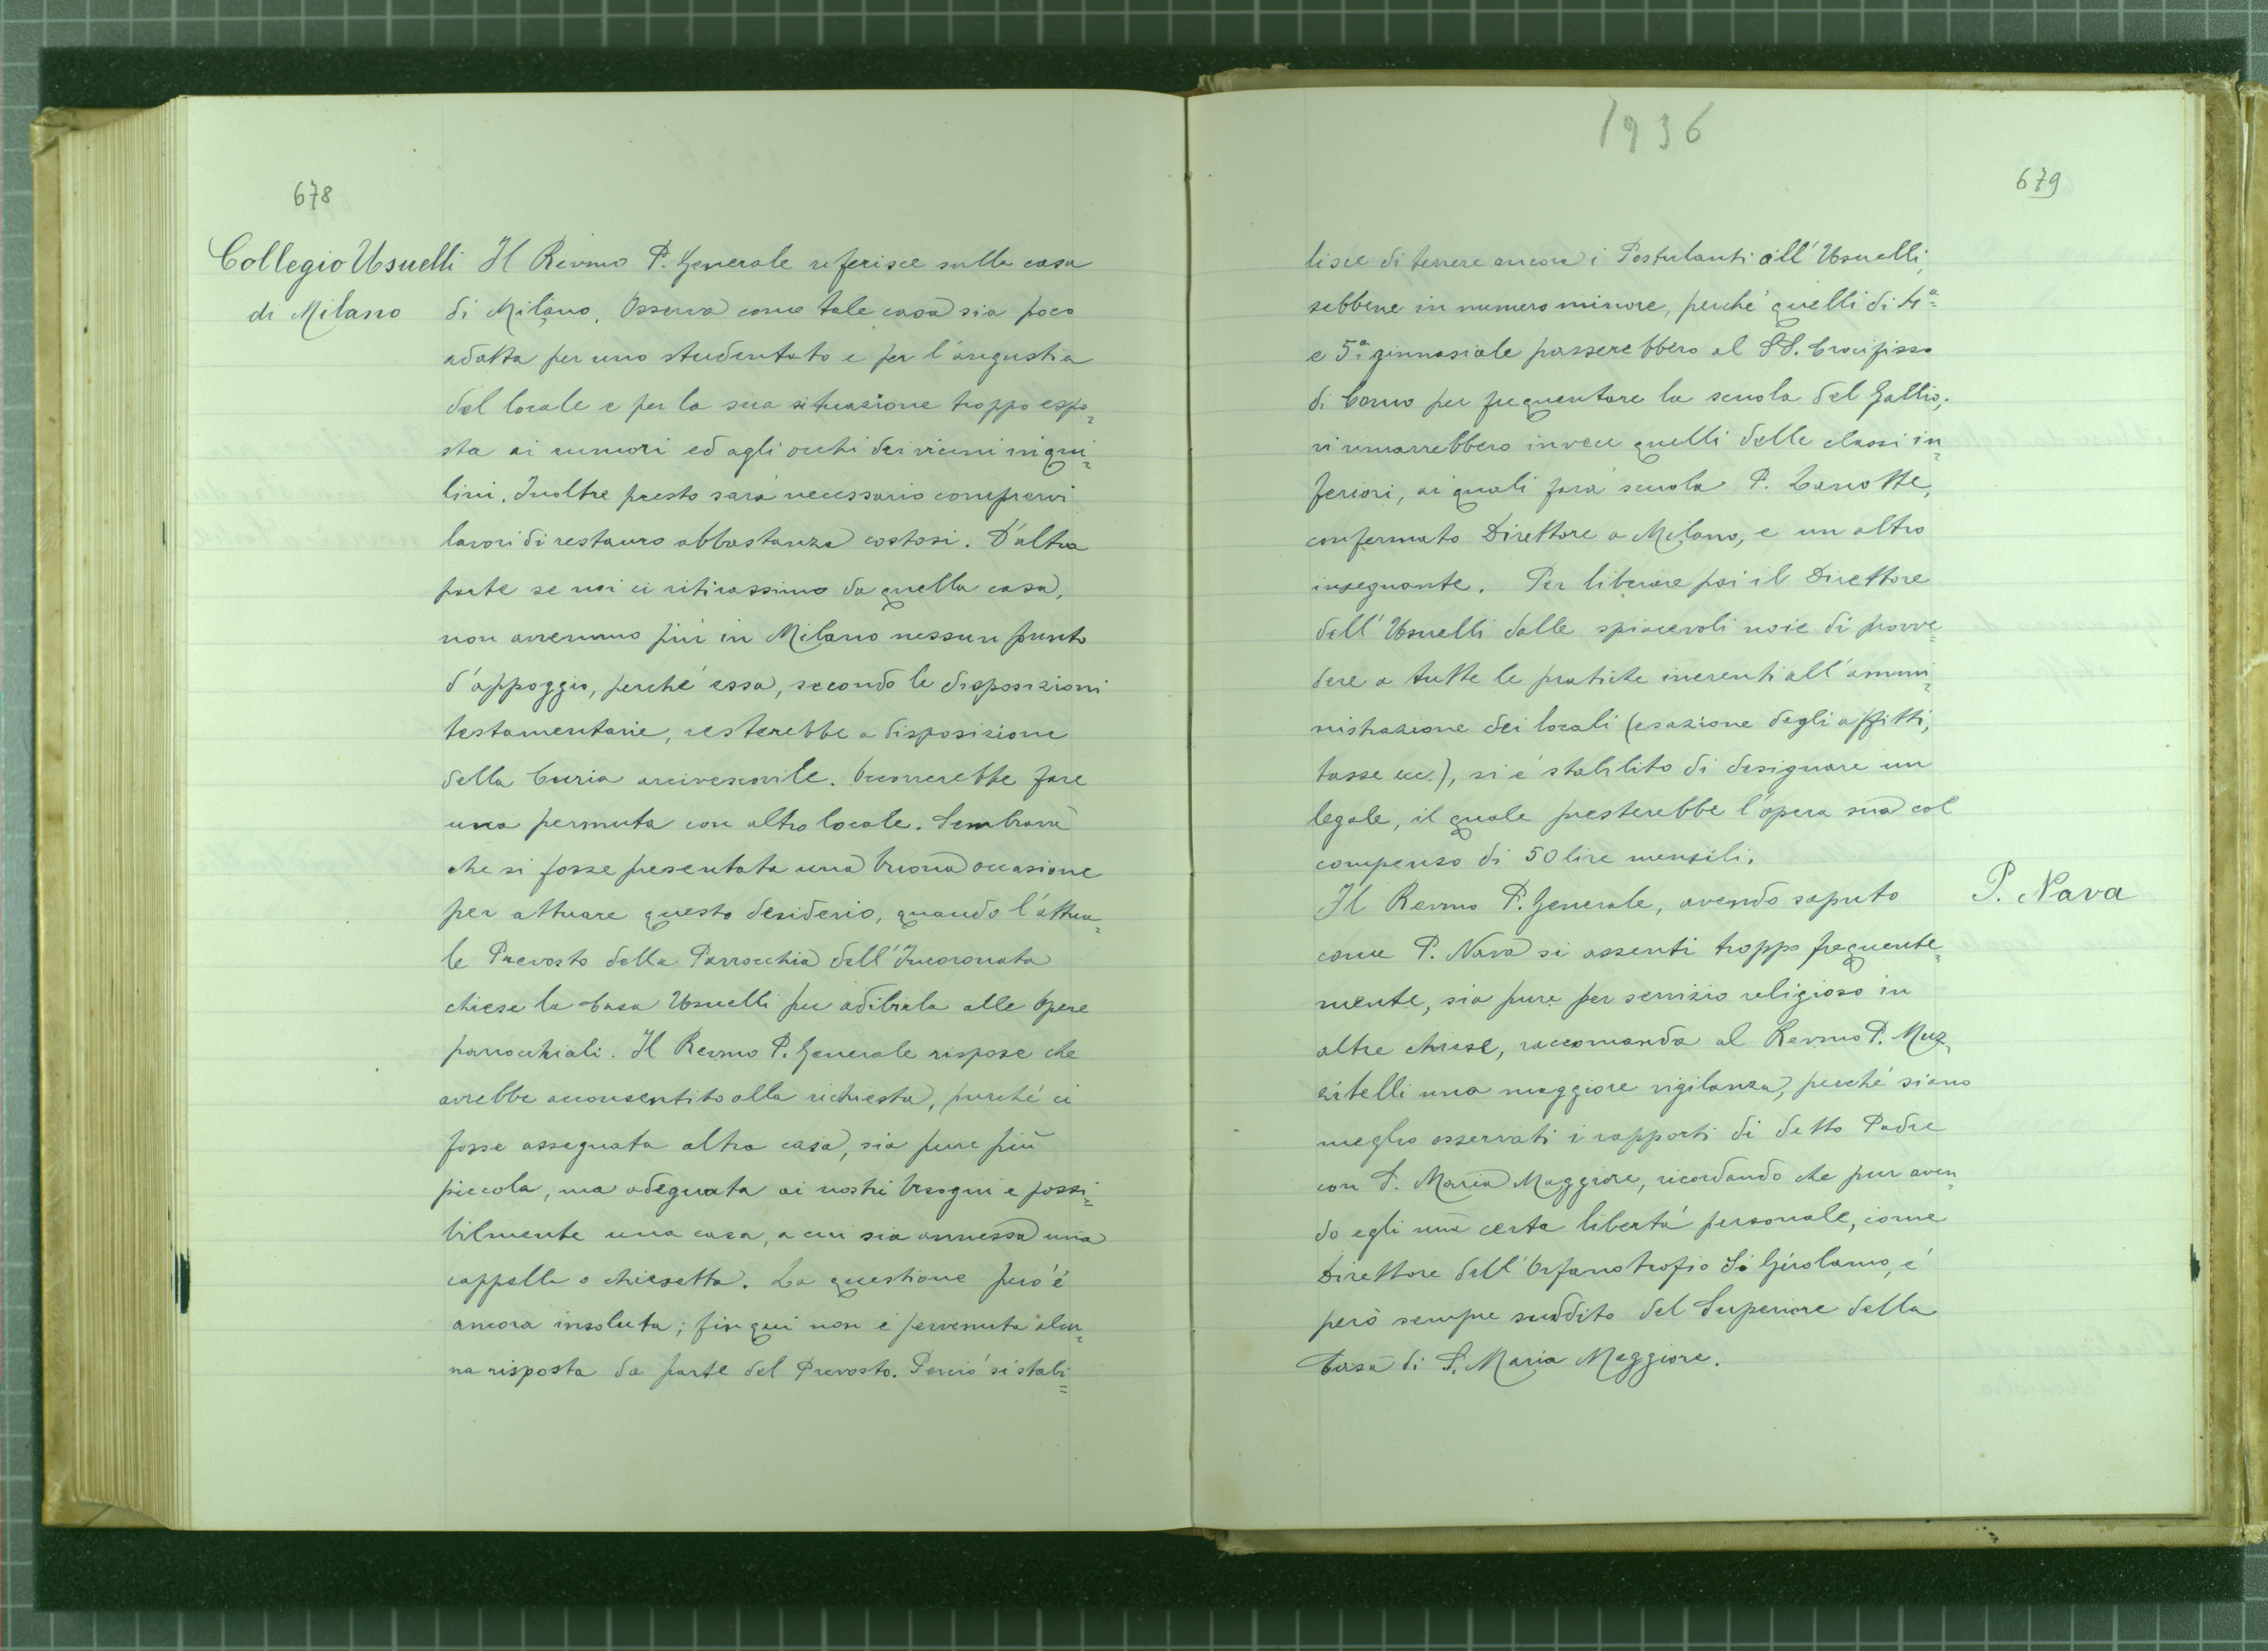 678
Collegio Usuelli
di Milano
Il Revmo P. Generale referisce sulla casa
di Milano. Osserva come tale casa sia poco
adatta per uno studentato e per l'angustia
del locale e per la sua situazione troppo espo=
sta ai rumori ed agli occhi dei vicini inqui=
lini. Inoltre presto sarà necessario compiervi
lavori di restauro abbastanza costosi. D'altra
parte se noi ci ritirassimo da quella casa,
non avremmo più in Milano nessun punto
d'appoggio, perché essa, secondo le disposizioni
testamentarie, resterebbe a disposizione
della Curia arcivescovile. Occorrerebbe fare
una permuta con altro locale. Sembrava
che si fosse presentata una buona occasione
per attuare questo desiderio, quando l'attua=
le Prevosto della Parrocchia dell'Incoronata
chiese la Casa Usuelli per adibirla alle Opere
parrocchiali. Il Revmo P. Generale rispose che
avrebbe acconsentito alla richiesta, purché ci
fosse assegnata altra casa, sia pure più
piccola, ma adeguata ai nostri bisogni e possi=
bilmente una casa, a cui sia annessa una
cappella o chiesetta. La questione però è
ancora insoluta; fin qui non è pervenuta alcu=
na risposta da parte del Prevosto. Perciò si stabi=
1936
679
lisce di tenere ancora i Postulanti all'Usuelli,
sebbene in numero minore, perché quelli di 4ª
e 5ª ginnasiale passerebbero al SS. Crocifisso
di Como per frequentare la scuola del Gallio;
vi rimarrebbero invece quelli delle classi in=
feriori, ai quali farà scuola P. Zanotte,
confermato Direttore a Milano, e un altro
insegnante. Per liberare poi il Direttore
dell'Usuelli dalle spiacevoli noie di provve=
dere a tutte le pratiche inerenti all'ammi=
nistrazione dei locali (esazione degli affitti,
tasse ecc.), si è stabilito di designare un
legale, il quale presterebbe l'opera sua col
compenso di 50 lire mensili.
P. Nava
Il Revmo P. Generale, avendo saputo
come P. Nava si assenti troppo frequente=
mente, sia pure per servizio religioso in
altre chiese, raccomanda al Revmo P. Muz=
zitelli una maggiore vigilanza, perché siano
meglio osservati i rapporti di detto Padre
con S. Maria Maggiore, ricordando che pur aven=
do egli una certa libertà personale, come
Direttore dell'Orfanotrofio S. Girolamo, è
però sempre suddito del Superiore della
Casa di S. Maria Maggiore.